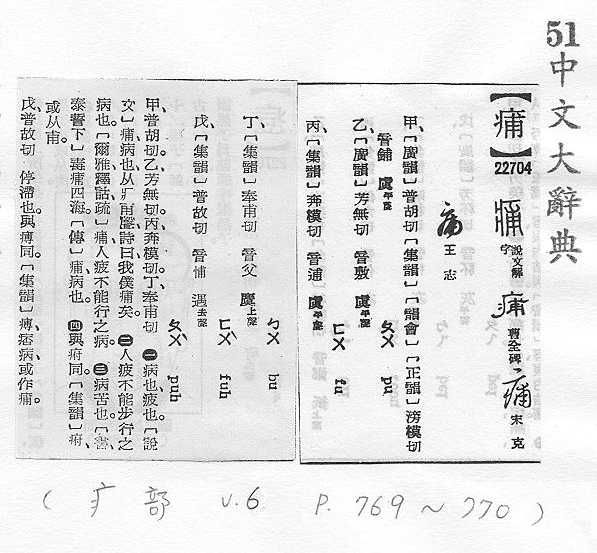 51中文大辭典
【痡】
22704
說文解字
曹全碑
宋克
王志
甲、〔廣韻〕普胡切〔集韻〕〔韻會〕〔正韻〕滂模切
音鋪 虞平聲 ㄆㄨ pu
乙、〔廣韻〕芳無切 音敷 虞平聲 ㄈㄨ fu
丙、〔集韻〕奔模切 音逋 虞平聲
丁、〔集韻〕奉甫切 音父 麌上聲 ㄅㄨ bu
ㄈㄨˋ fuh
戊、〔集韻〕普故切 音怖 遇去聲 ㄆㄨˋ puh
甲、普胡切乙、芳無切丙、奔模切丁、奉甫切 ㊀病也疲也。〔說
文〕痡病也从疒甫聲詩曰我僕痡矣。㊁人疲不能步行之
病也。〔爾雅釋詁疏〕痡人疲不能行之病。㊂病苦也。〔書
泰誓下〕毒痡四海。〔傳〕痡病也。㊃與㾈同。〔集韻〕㾈、
或从甫。
戊、普故切 停滯也。與㾟同。〔集韻〕㾟、痞病或作痡。
( 疒部 v.6 P. 769～770 )